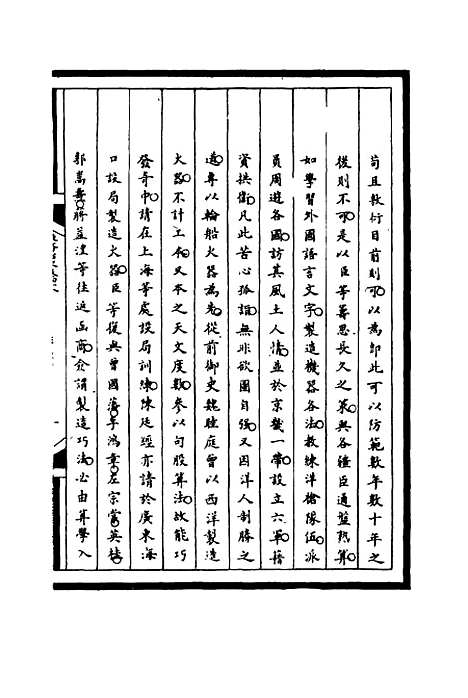 苟且敷衍目前則可以為即此可以防範數年數十年之
後則不可是以臣等籌思長久之策與各疆臣通盤熟算
如學習外國語言文字製造機器各法教練洋槍隊伍派
員周遊各國訪其風土人情並於京畿一帶設立六軍藉
資拱衛凡此苦心孤詣無非欲圖自強又因洋人制勝之
道專以輪船火器為先從前御史魏睦庭曾以西洋製造
火器不計工本又本之天文度數參以句股算法故能巧
發奇中請在上海等處設局訓練陳廷經亦請於廣東海
口設局製造火器臣等復與曾國藩李鴻章左宗棠英桂
郭嵩燾蔣益澧等往返函商僉謂製造巧法必由算學入